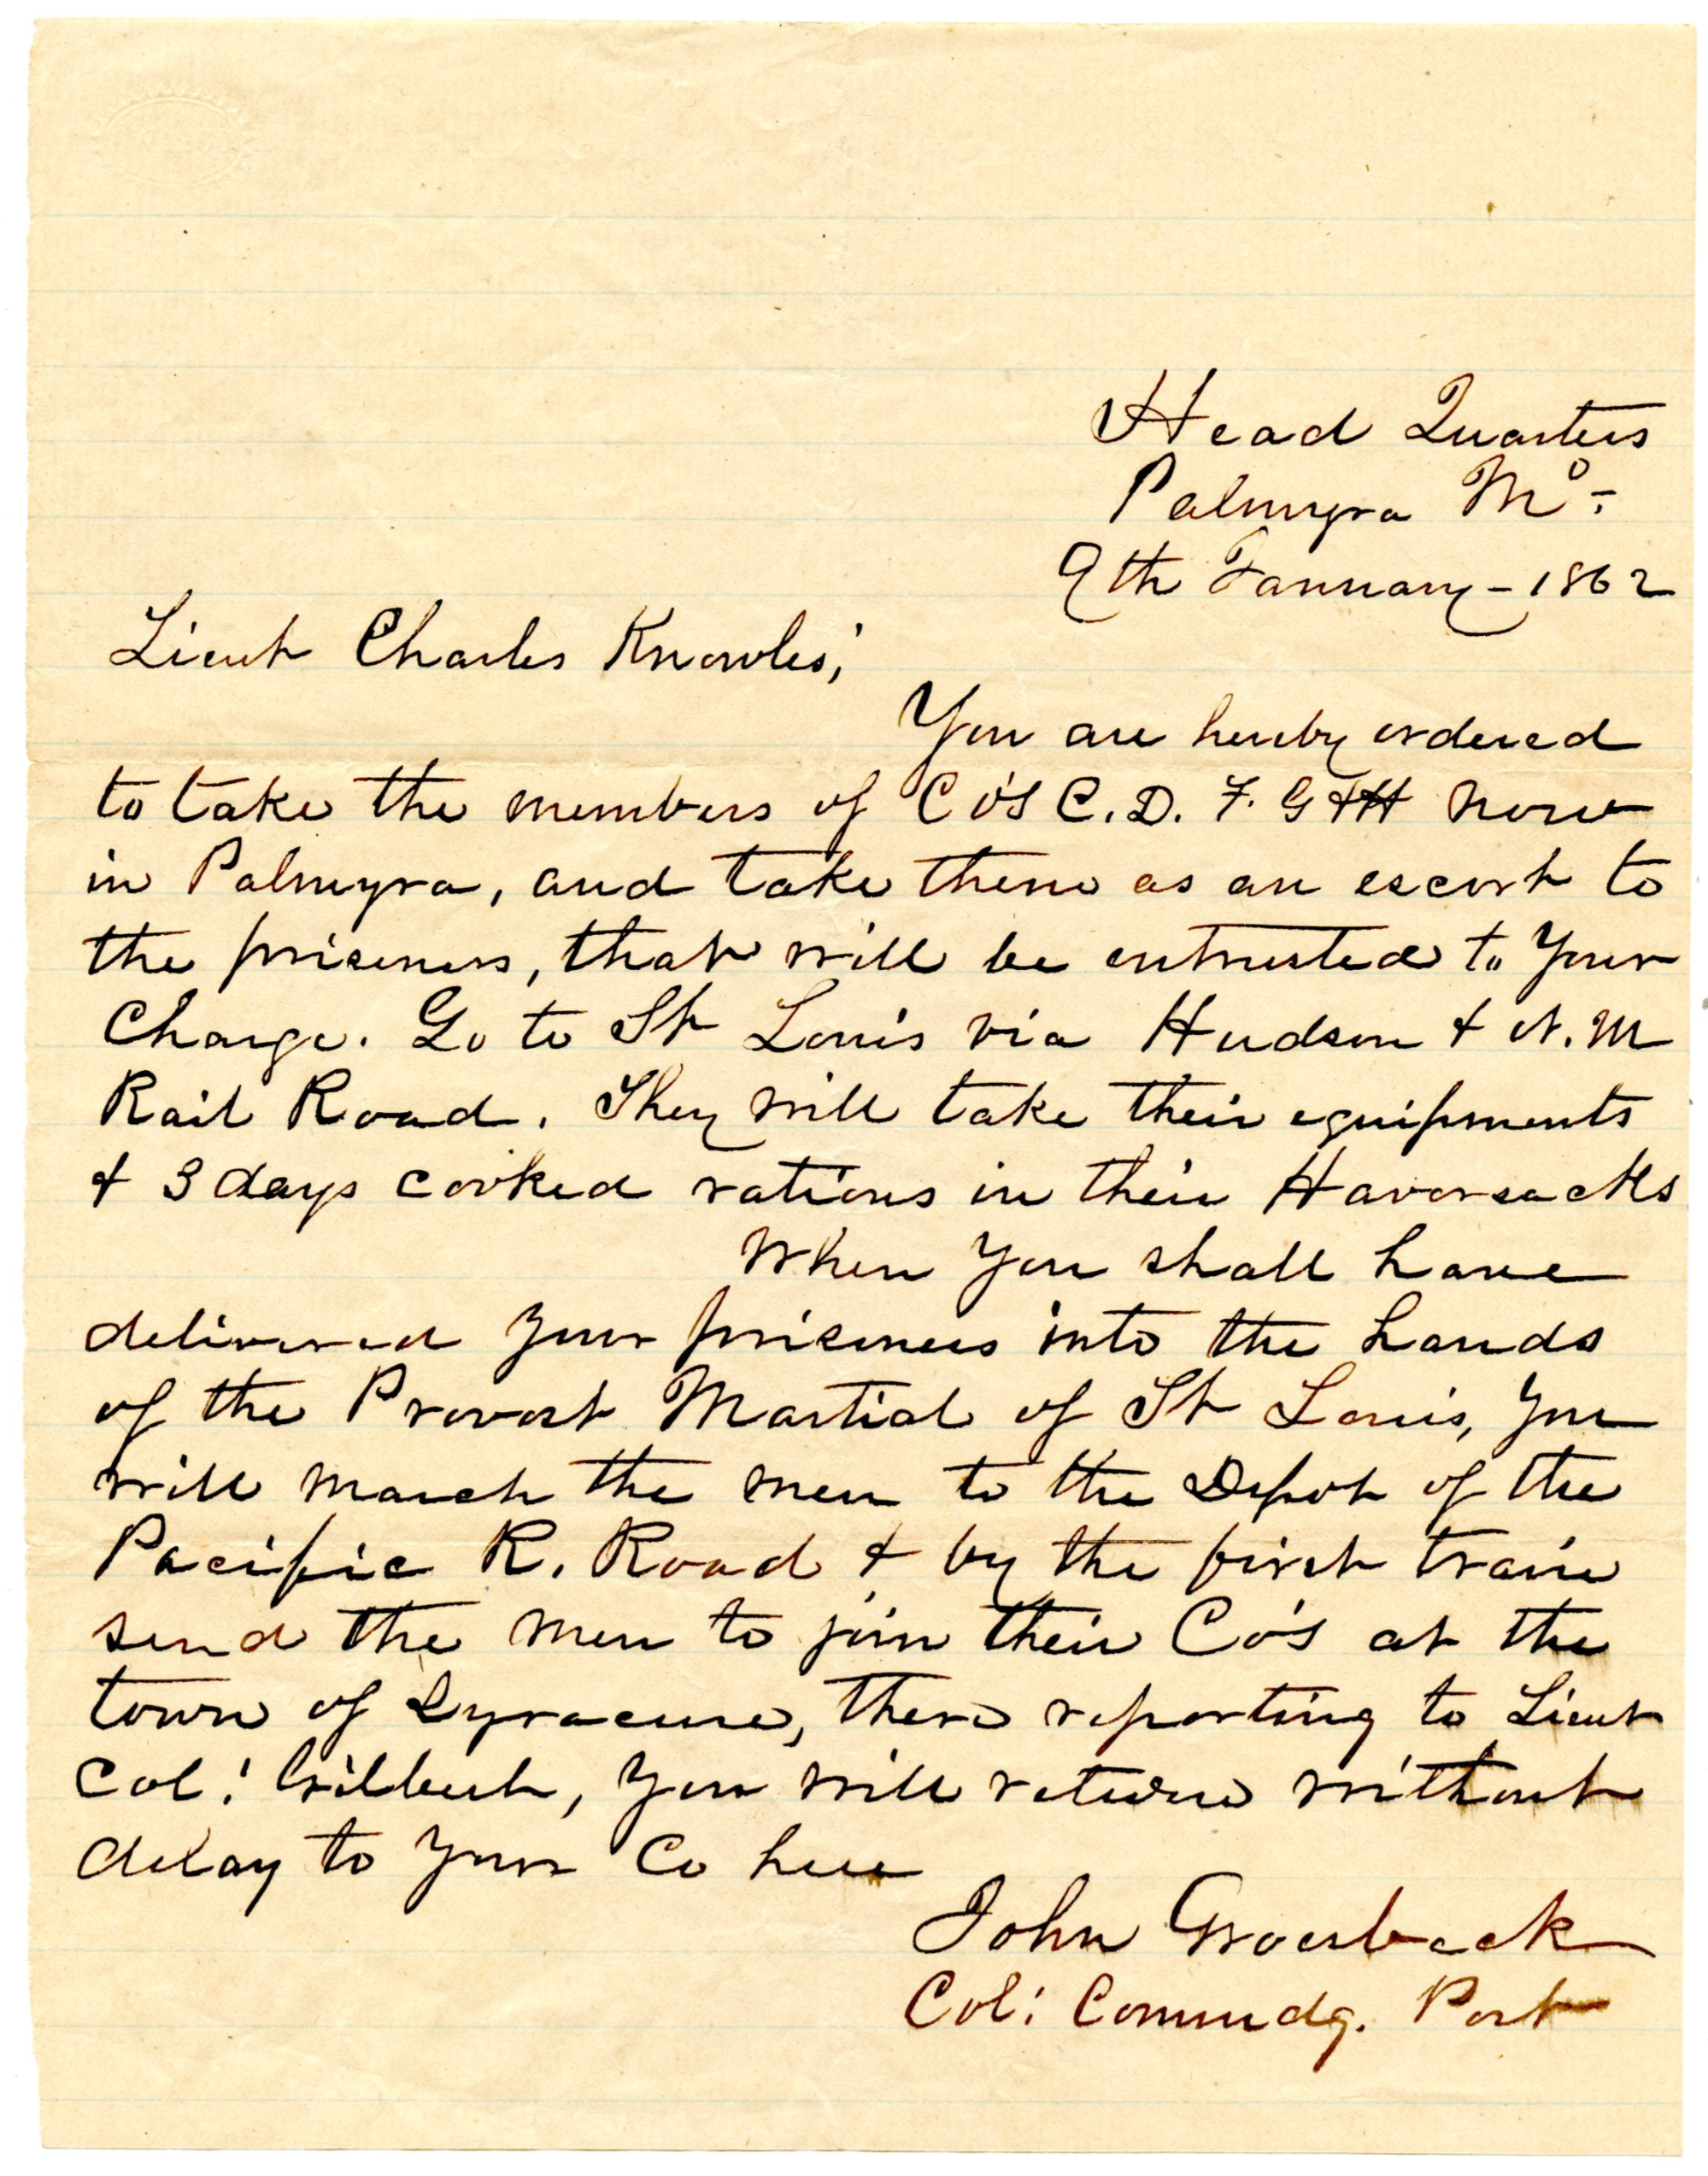 Head Quarters
Palmyra Mo.
9th January - 1862
Lieut Charles Knowles;
You are hereby ordered
to take the members of Co's C. D. F. G & H now
in Palmyra, and take them as an escort to
the prisoners, that will be entrusted to Your
Charge. Go to St Louis via Hudson & N. M
Rail Road. They will take their equipments
& 3 days cooked rations in their Haversacks
When You shall have
delivered Your prisoners into the hands
of the Provost Martial of St Louis, You
will march the men to the Depot of the
Pacific R. Road & by the first train
send the men to join their Co's at the
town of Syracuse, there reporting to Lieut
Col: Wilbert, You will return without
delay to Your Co here
John Groesbeck
Col: Commdg. Post